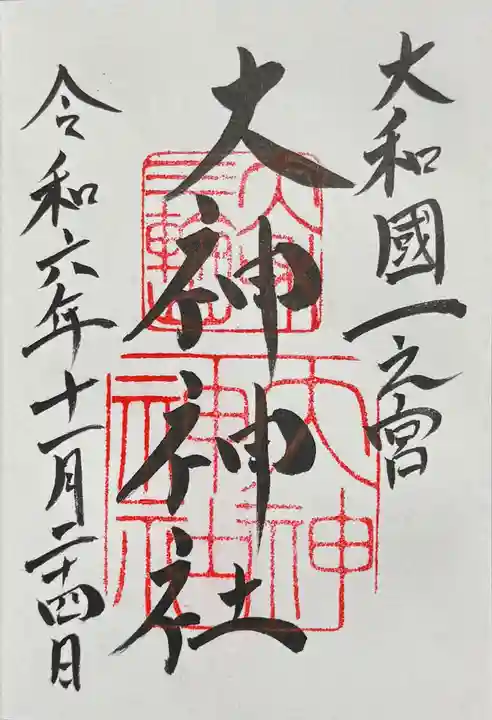 大和國一之宮
大神神社
令和六年十一月二十四日
三輪
大神
大神
神社